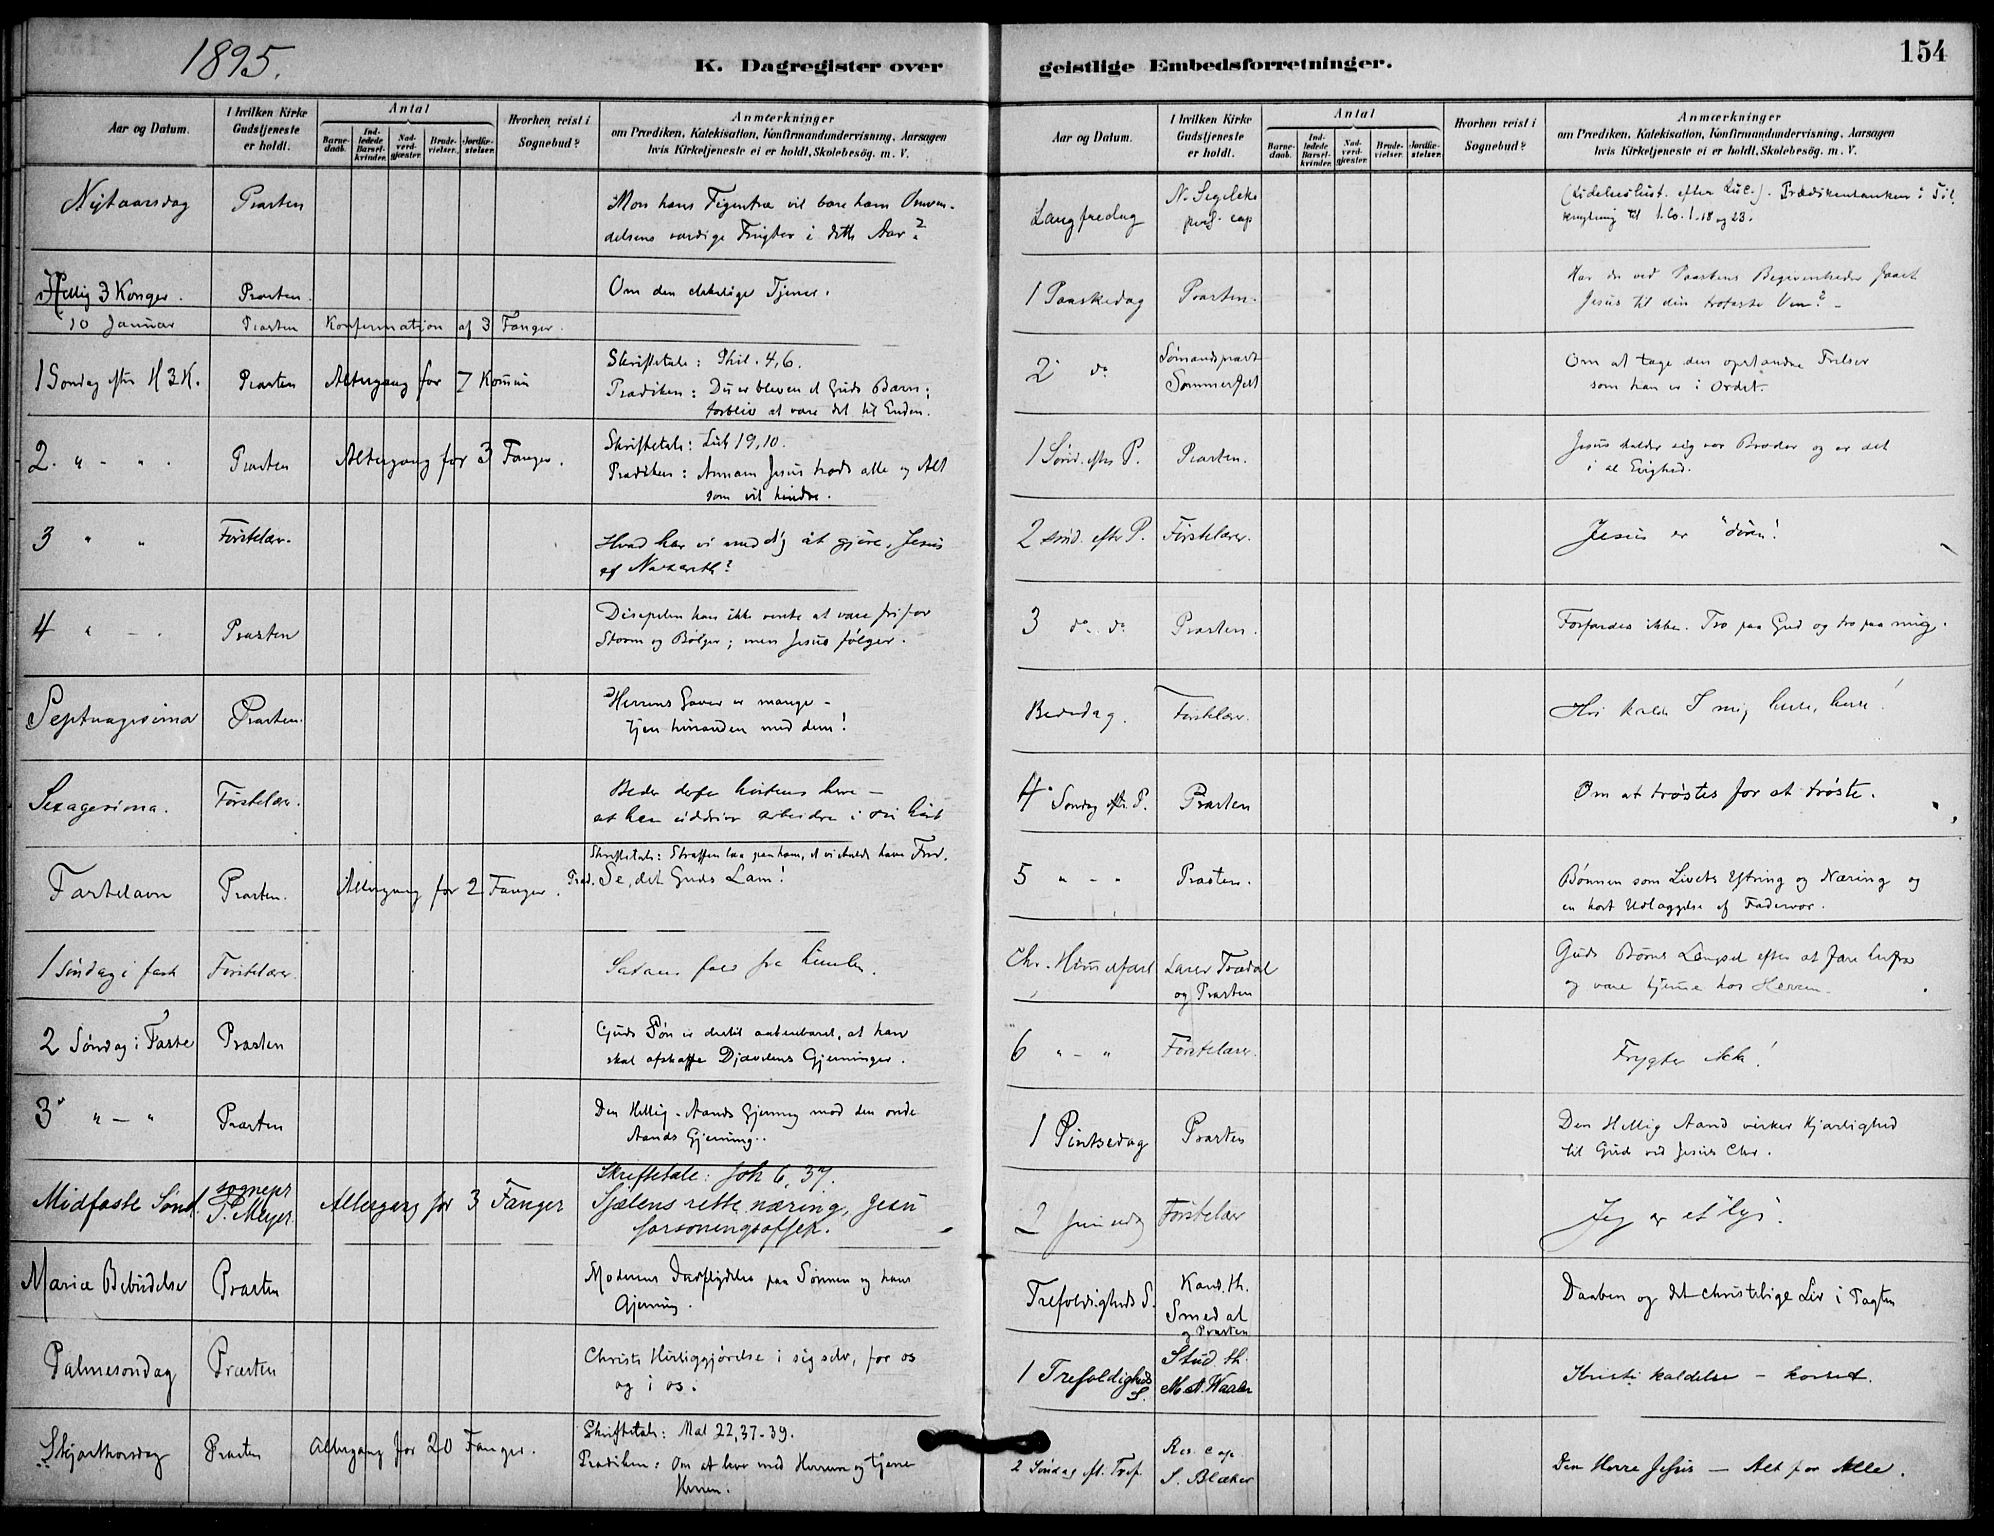 1895.
K. Dagregister over
Aar og Datum.
I hvilken Kirke Gudstjeneste er holdt.
Antal
Barnedaab.
Indledede Barselkvinder.
Nadverdgjæster.
Brudevielser.
Jordfæstelser.
Hvorhen reist i Sognebud?
Anmærkninger
om Prædiken, Katekisation, Konfirmandundervisning, Aarsagen
hvis Kirketjeneste ei er holdt, Skolebesög, m. V.
Nytaarsdag Præsten Mon hans Figentræ vil bære ham Omven-
delsens værdige Frugter i dette Aar?
Hellig 3 Konger. Præsten. Om den elskelige Tjener.
10 Januar Præsten Konfirmation af 3 Fanger.
1 Søndag efter H 3 K. Præsten Altergang for 7 Skriftetale: Phil. 4,6.
Prædiken: Du er bleven et Guds Barn;
forbliv at være det til Enden.
2. " - " . Præsten Altergang for 3 Fanger. Skriftetale: Luk 19,10.
Prædiken: Annam Jesus trods alle og Alt
som vil hindre.
3 " " Førstelær. Hvad har vi med dig at gjøre, Jesus
af Nazareth?
4 " - . Præsten Disipelen kan ikke vente at være fri for
Storm og Bølger; men Jesus følger.
Septuagesima Præsten. Herrens Gaver er mange -
tjen hinanden med dem!
Sexagesima. Førstelær. Beder derfor høstens herre -
at han uddriver arbeidere i sin høst
Skriftetale: Straffen laa paa ham, at vi skulde have Fred.
Fastelavn Præsten. Altergang for 2 Fanger. Præd. Se, det Guds Lam!
1 Søndag i fast Førstelærer. Satans fald fra himlen.
2 Søndag i Faste Præsten Guds Søn er dertil aabenbaret, at han
skal afskaffe Djævelens Gjerninger.
3" " - " Præsten Den Hellig-Aands Gjerning mod den onde
Aands Gjerning.
Midfaste Sønd. sognepr P. Meyer. Altergang for 3 Fanger Skriftetale: Joh 6, 37.
Sjælens rette næring, Jesu
forsoningsoffer.
Mariæ Bebudelse Præsten Moderens Indflydelse paa Sønnen og hans
Gjerning.
Palmesøndag Præsten Christi Herliggjørelse i sig selv, for os
og i os.
Skjærthorsdag Præsten Altergang for 20 Fanger. Skriftetale: Mat 22,37-39.
Prædiken: Om at leve med Herren og tjene
Herren.
geistlige Embedsforretninger.
154
Aar og Datum.
I hvilken Kirke Gudstjeneste er holdt.
Antal
Barnedaab.
Indledede Barselkvinder.
Nadverdgjæster.
Brudevielser.
Jordfæstelser.
Hvorhen reist i Sognebud?
Anmærkninger
om Prædiken, Katekisation, Konfirmandundervisning, Aarsagen
hvis Kirketjeneste ei er holdt, Skolebesög, m. V.
Langfredag N. Segelcke pers. cap (Lidelseshist. efter Luc.). Prædikentanken i Til-
knytning til 1. Co. 1-18 og 23.
1 Paaskedag Præsten. Har de ved Paaskens Begivenheder faaet
Jesus til din trofaste Ven? -
2" do Sømandspræst Sommerfelt Om at tage den opstandne Frelser
som han er i Ordet.
1 Sønd. efter P. Præsten. Jesus kalder sig vor Broder og er det
i al Evighed.
2 sønd. efter P. Førstelærer. Jesus er "døren!
3 do. do Præsten. Forfærdes ikke. Tro paa Gud og tro paa mig.
Bededag. Førstelærer. Hvi kalde I mig herre, herre!
4" Søndag eftr. P. Præsten Om at trøstes for at trøste.
5 " - " Præsten. Bønnen som Livets Ytring og Næring og
en kort Udlæggelse af Fadervor.
Chr. Himmelfart Lærer Trædal og Præsten Guds Børns Længsel efter at fare herfra
og være hjemme hos Herren.
6 " - " Førstelærer. Frygter ikke!
1 Pintsedag Præsten Den Hellig Aand virker Kjærlighed
til Gud ved Jesus Chr.
2 Førstelær Jeg er et lys!
Trefoldigheds S. Kand. th. Smedal og Præsten Daaben og det christelige Liv i Pagten
1 Trefoldigheds S. Stud. th. M. A. Waaler Kristi kaldelse - korset.
2 Søndag eft. Tref. Res. cap. S. Blæker Den Herre Jesus - Alt for Alle.